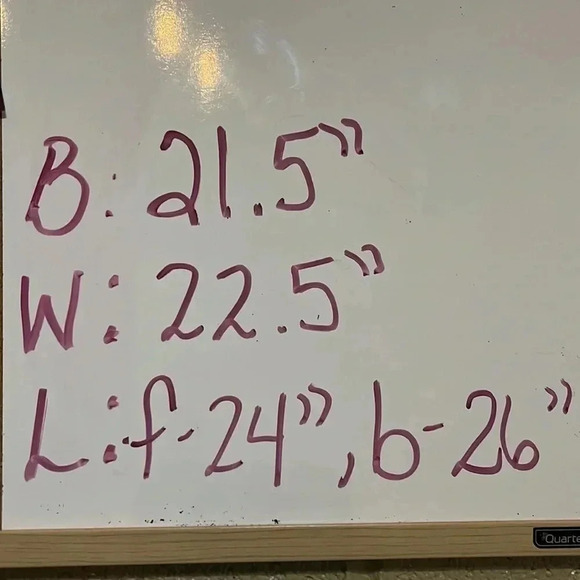 B: 21.5"
W: 22.5"
L: f-24", b-26"
Quarte